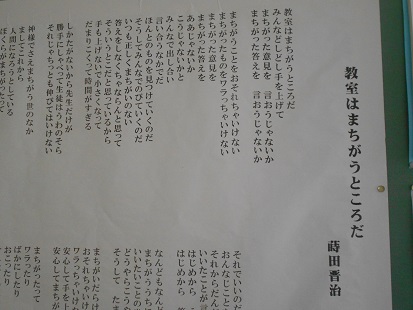 教室はまちがうところだ
蒔田晋治
教室はまちがうところだ
みんなどしどし手を上げて
まちがった意見を　言おうじゃないか
まちがった答えを　言おうじゃないか
まちがうことをおそれちゃいけない
まちがったものをワラっちゃいけない
まちがった意見を
まちがった答えを
ああじゃないか
こうじゃないかと
みんなで出し合い
言い合うなかで
ほんとのものを見つけていくのだ
そうしてみんなでのびていくのだ
いつも正しくまちがいのない
答えをしなくちゃならんと思って
そういうとこだと思っているから
手も上げないで小さくなって
だまりこくって時間がすぎる
しかたがないから先生だけが
勝手にしゃべって生徒はうわのそら
それじゃちっとも伸びてはいけない
神様でさえまちがう世のなか
ましてこれから
人間になろうとしている
ぼくらがまちがったって
それでいいのだ
おんなじこと
それからだん
いいたいことが言
はじめから
はじめから　答
なんどもなんど
いいたいことの
まちがううち
どうやらこう
そうして　たま
まちがいだらけ
おそれちゃいけ
ワラっちゃいけ
安心して手を上
安心してまちが
まちがったって
ワラったり
ばかにしたり
おこったり